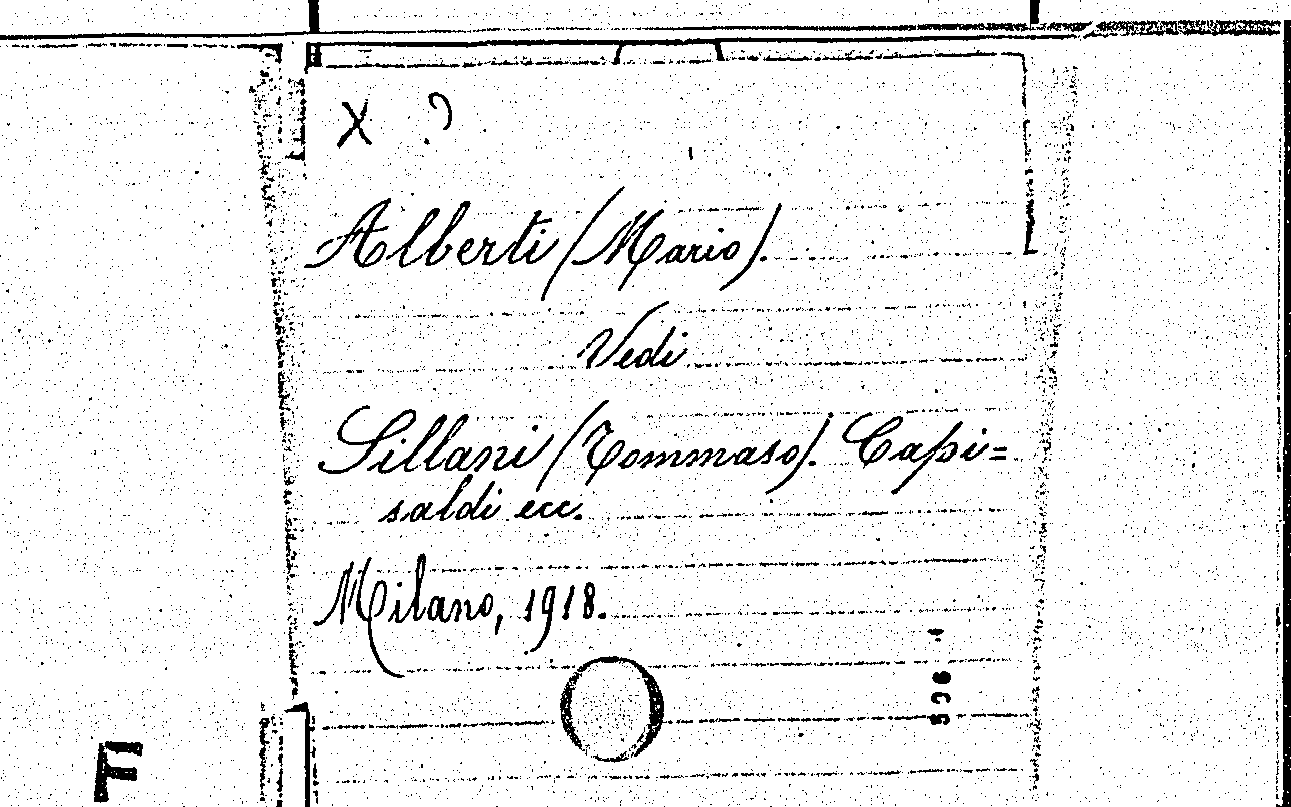 X ?
Alberti (Mario).
Vedi
Sillani (Tommaso). Capi=
saldi ecc.
Milano, 1918.
F